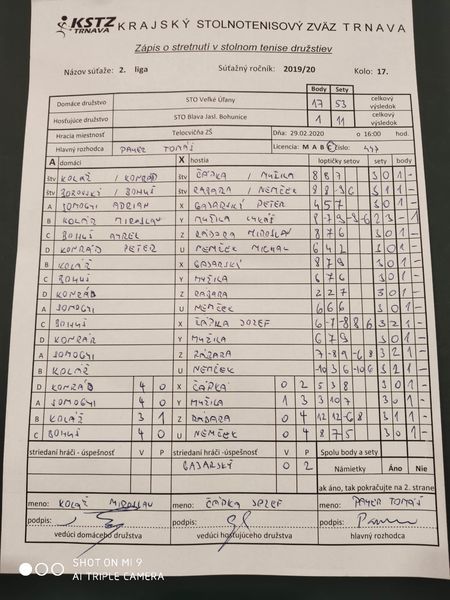 KSTZ TRNAVA KRAJSKÝ STOLNOTENISOVÝ ZVÄZ TRNAVA
Zápis o stretnutí v stolnom tenise družstiev
Názov súťaže: 2. liga Súťažný ročník: 2019/20 Kolo: 17.
Body Sety
Domáce družstvo STO Veľké Úľany 17 53 celkový výsledok
Hosťujúce družstvo STO Blava Jasl. Bohunice 1 11 celkový výsledok
Hracia miestnosť Telocvičňa ZŠ Dňa: 29.02.2020 o 16:00 hod.
Hlavný rozhodca PAYER TOMÁŠ Licencia: M A B C číslo: 447
A domáci X hostia loptičky setov sety body
štv KOLÁŽ / KONRÁD štv ČÁPKA / MUŽILA 8 8 7 3 0 1 -
štv BOROVSKÝ / BOHUŠ štv RÁBARA / NEMČEK 8 8 -3 6 3 1 1 -
A SOMOGYI ADRIAN X GAJARSKÝ PETER 4 5 7 3 0 1 -
B KOLÁŽ MIROSLAV Y MUŽILA LUKÁŠ 8 -7 9 -3 -6 2 3 - 1
C BOHUŠ X RÁBARA MIROSLAV 8 7 6 3 0 1 -
D KONRÁD PETER U NEMČEK MICHAL 6 4 2 3 0 1 -
B KOLÁŽ X GAJARSKÝ 8 7 9 3 0 1 -
C BOHUŠ Y MUŽILA 6 7 6 3 0 1 -
D KONRÁD Z RÁBARA 2 2 7 3 0 1 -
A SOMOGYI U NEMČEK 6 6 6 3 0 1 -
C BOHUŠ X ČÁPKA JOZEF 6 -7 -8 8 6 3 2 1 -
D KONRÁD Y MUŽILA 6 7 9 3 0 1 -
A SOMOGYI Z RÁBARA 7 -8 9 -6 8 3 2 1 -
B KOLÁŽ U NEMČEK -10 3 6 -10 6 3 2 1 -
D KONRÁD 4 0 X ČÁPKA 0 2 5 3 8 3 0 1 -
A SOMOGYI 4 0 Y MUŽILA 1 3 3 10 7 3 0 1 -
B KOLÁŽ 3 1 Z RÁBARA 0 4 12 12 -6 8 3 1 1 -
C BOHUŠ 4 0 U NEMČEK 0 4 8 7 5 3 0 1 -
striedaní hráči - úspešnosť V P striedaní hráči - úspešnosť V P Spolu body a sety
GAJARSKÝ 0 2 Námietky Áno Nie
ak áno, tak pokračujte na 2. strane
meno: KOLÁŽ MIROSLAV meno: ČÁPKA JOZEF meno: PAYER TOMÁŠ
podpis: podpis: podpis:
vedúci domáceho družstva vedúci hosťujúceho družstva hlavný rozhodca
SHOT ON MI 9
AI TRIPLE CAMERA